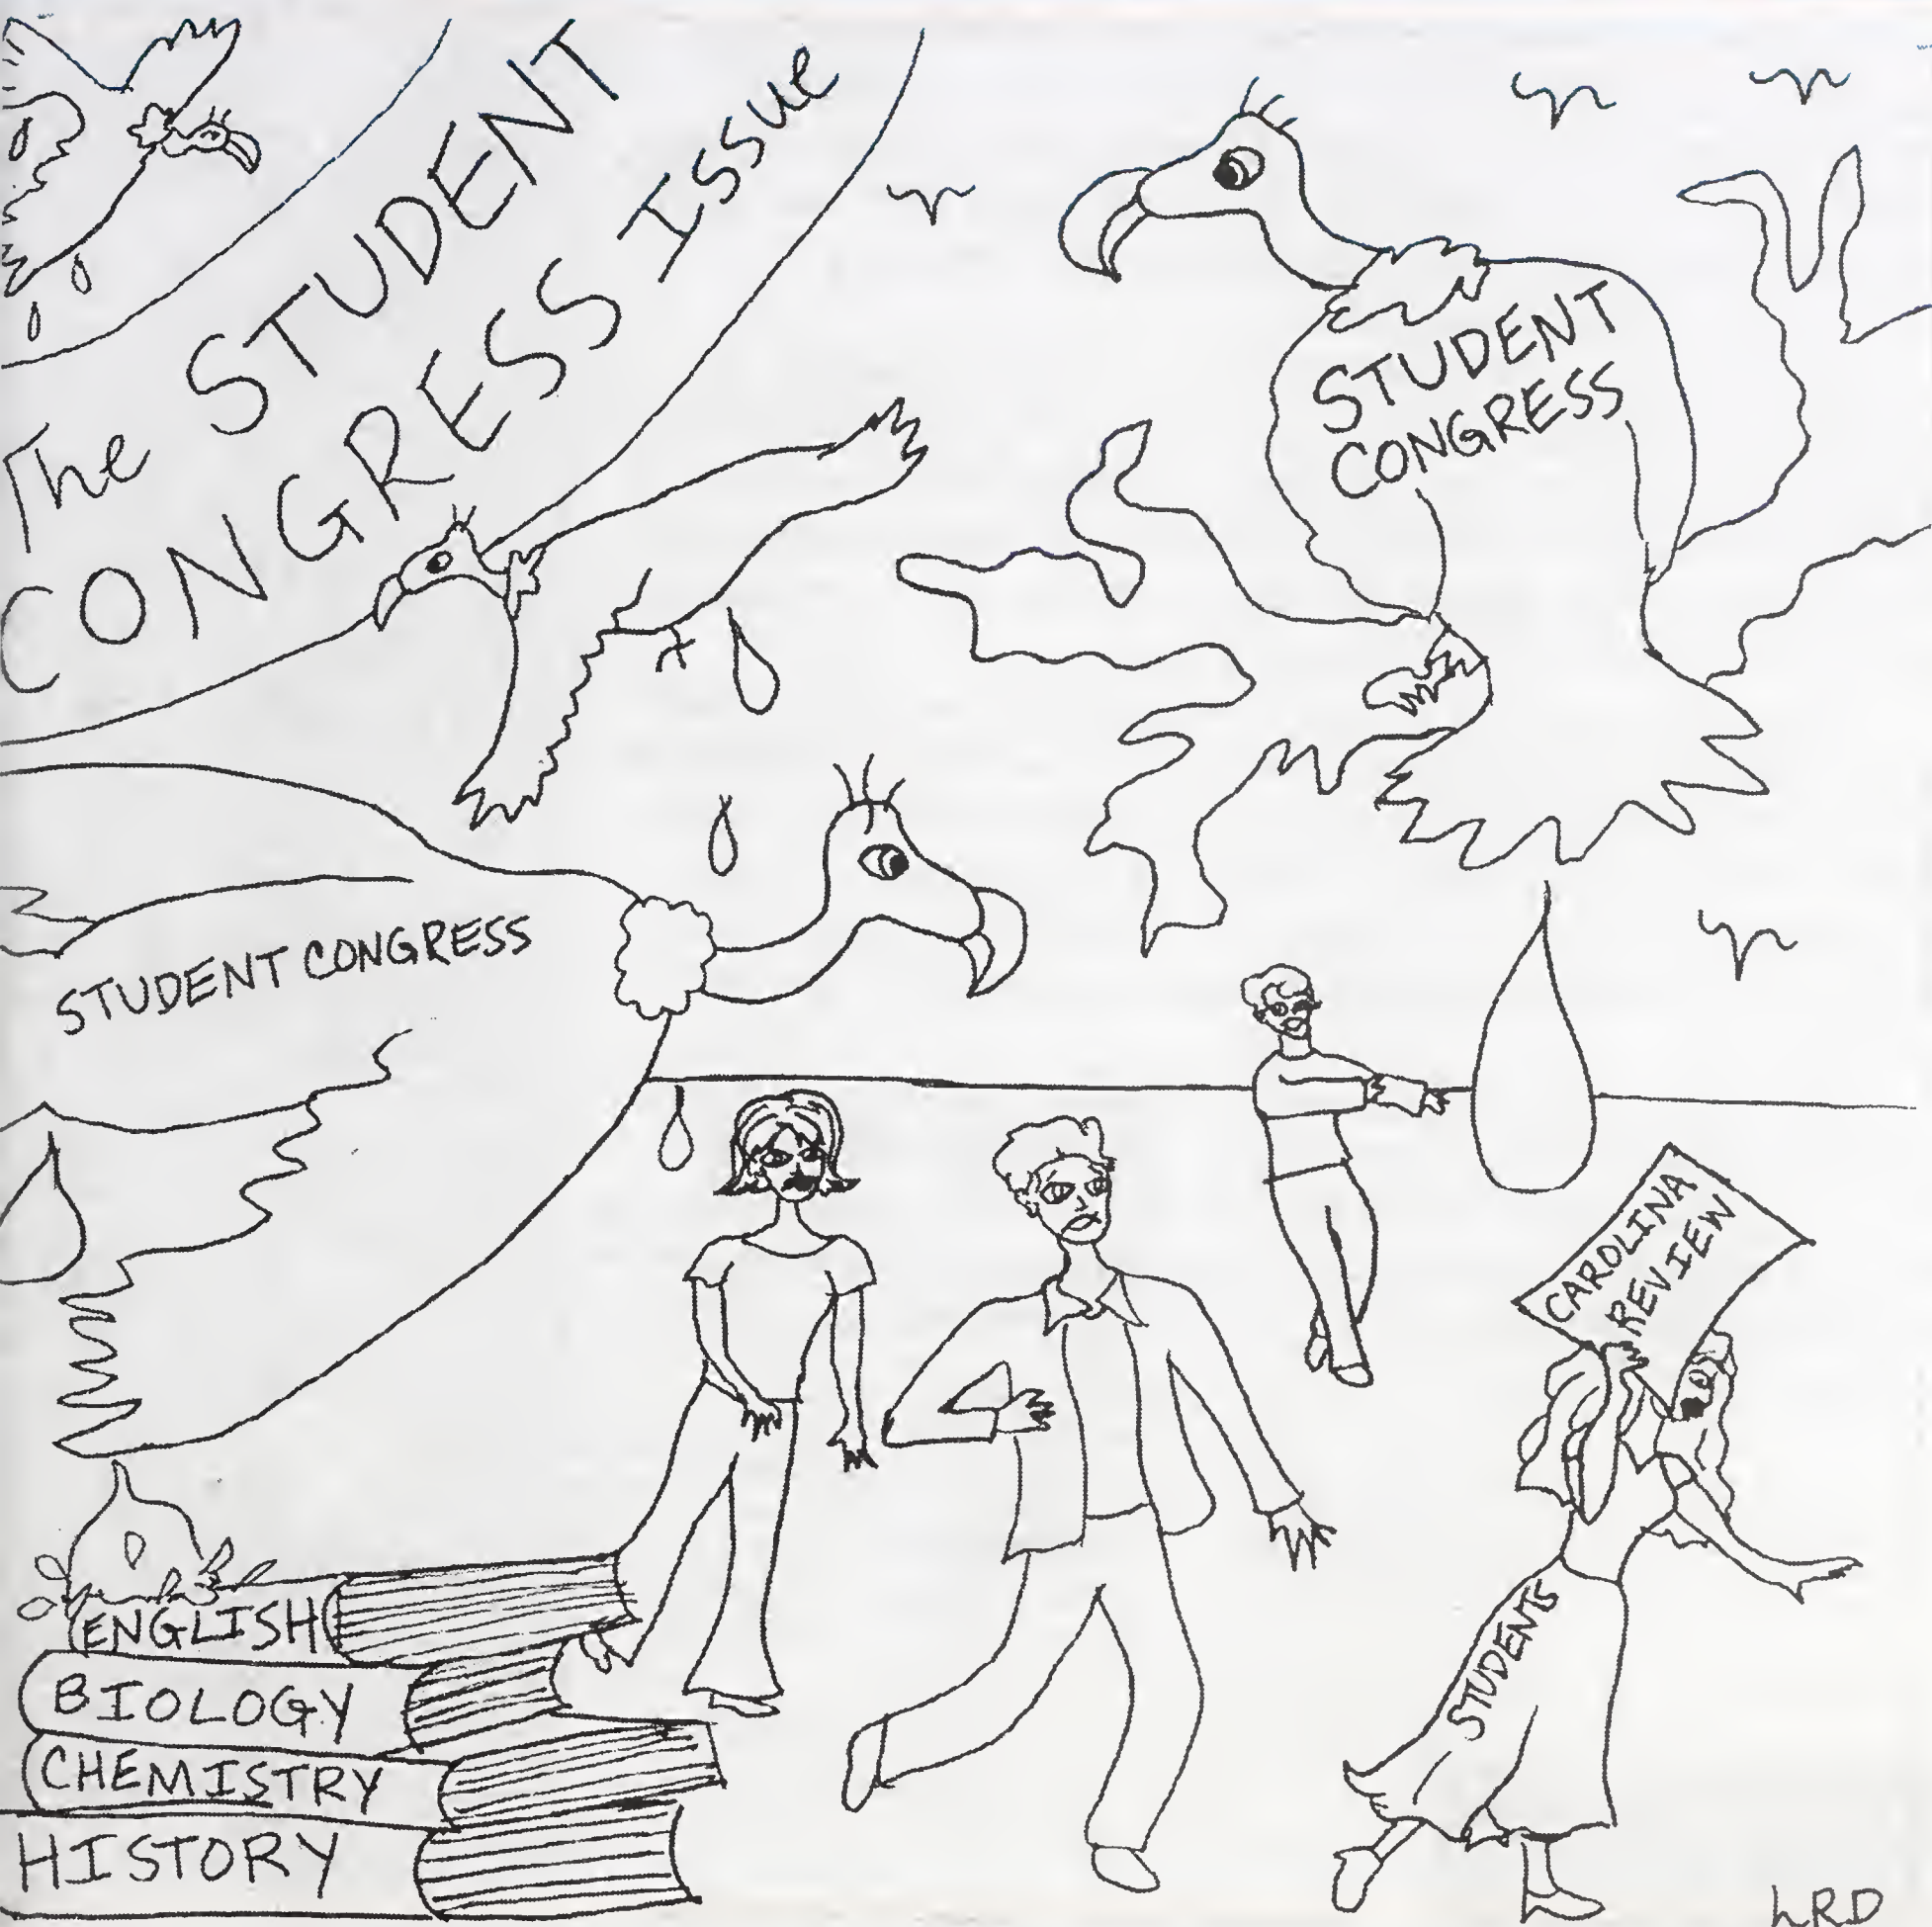 The STUDENT
CONGRESS ISSUe
STUDENT
CONGRESS
STUDENT CONGRESS
CAROLINA
REVIEW
STUDENTS
ENGLISH
BIOLOGY
CHEMISTRY
HISTORY
LRD